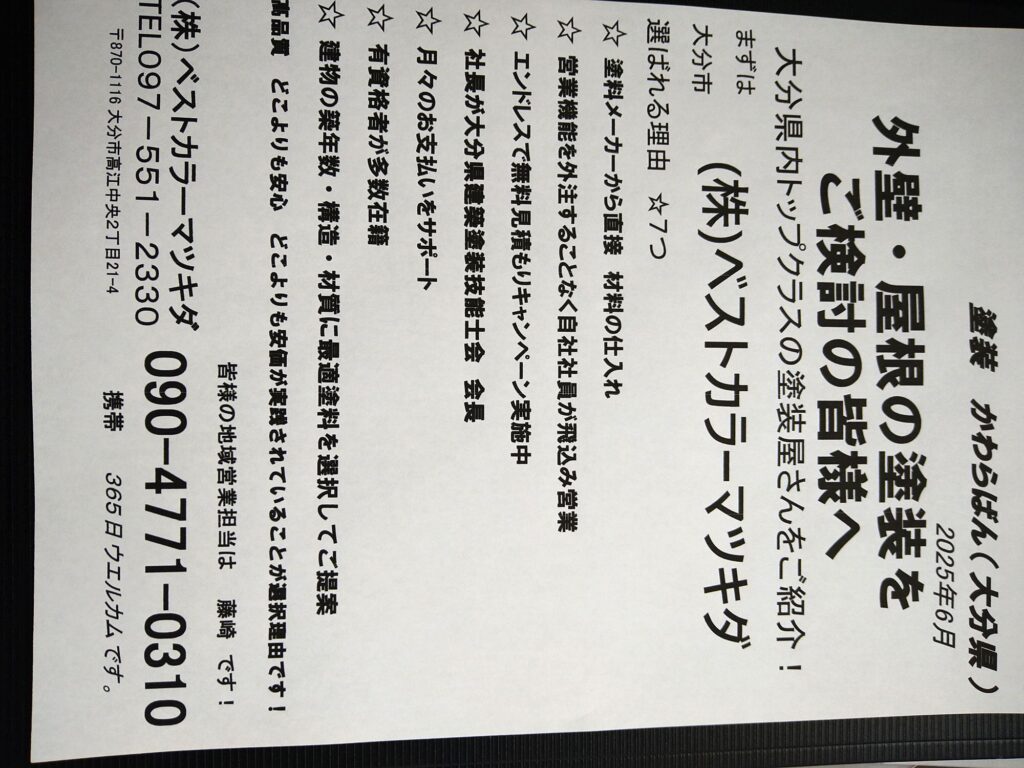 塗装　かわらばん（大分県）
2025年6月
外壁・屋根の塗装を
ご検討の皆様へ
大分県内トップクラスの塗装屋さんをご紹介！
まずは
大分市　(株)ベストカラーマツキダ
選ばれる理由　☆7つ
☆　塗料メーカーから直接　材料の仕入れ
☆　営業機能を外注することなく自社社員が飛込み営業
☆　エンドレスで無料見積もりキャンペーン実施中
☆　社長が大分県建築塗装技能士会　会長
☆　月々のお支払いをサポート
☆　有資格者が多数在籍
☆　建物の築年数・構造・材質に最適塗料を選択してご提案
高品質　どこよりも安心　どこよりも安価が実践されていることが選択理由です！
皆様の地域営業担当は　藤崎　です！
（株）ベストカラーマツキダ
TEL097－551－2330　090－4771－0310
〒870-1116 大分市高江中央2丁目21-4　携帯　365日 ウエルカムです。